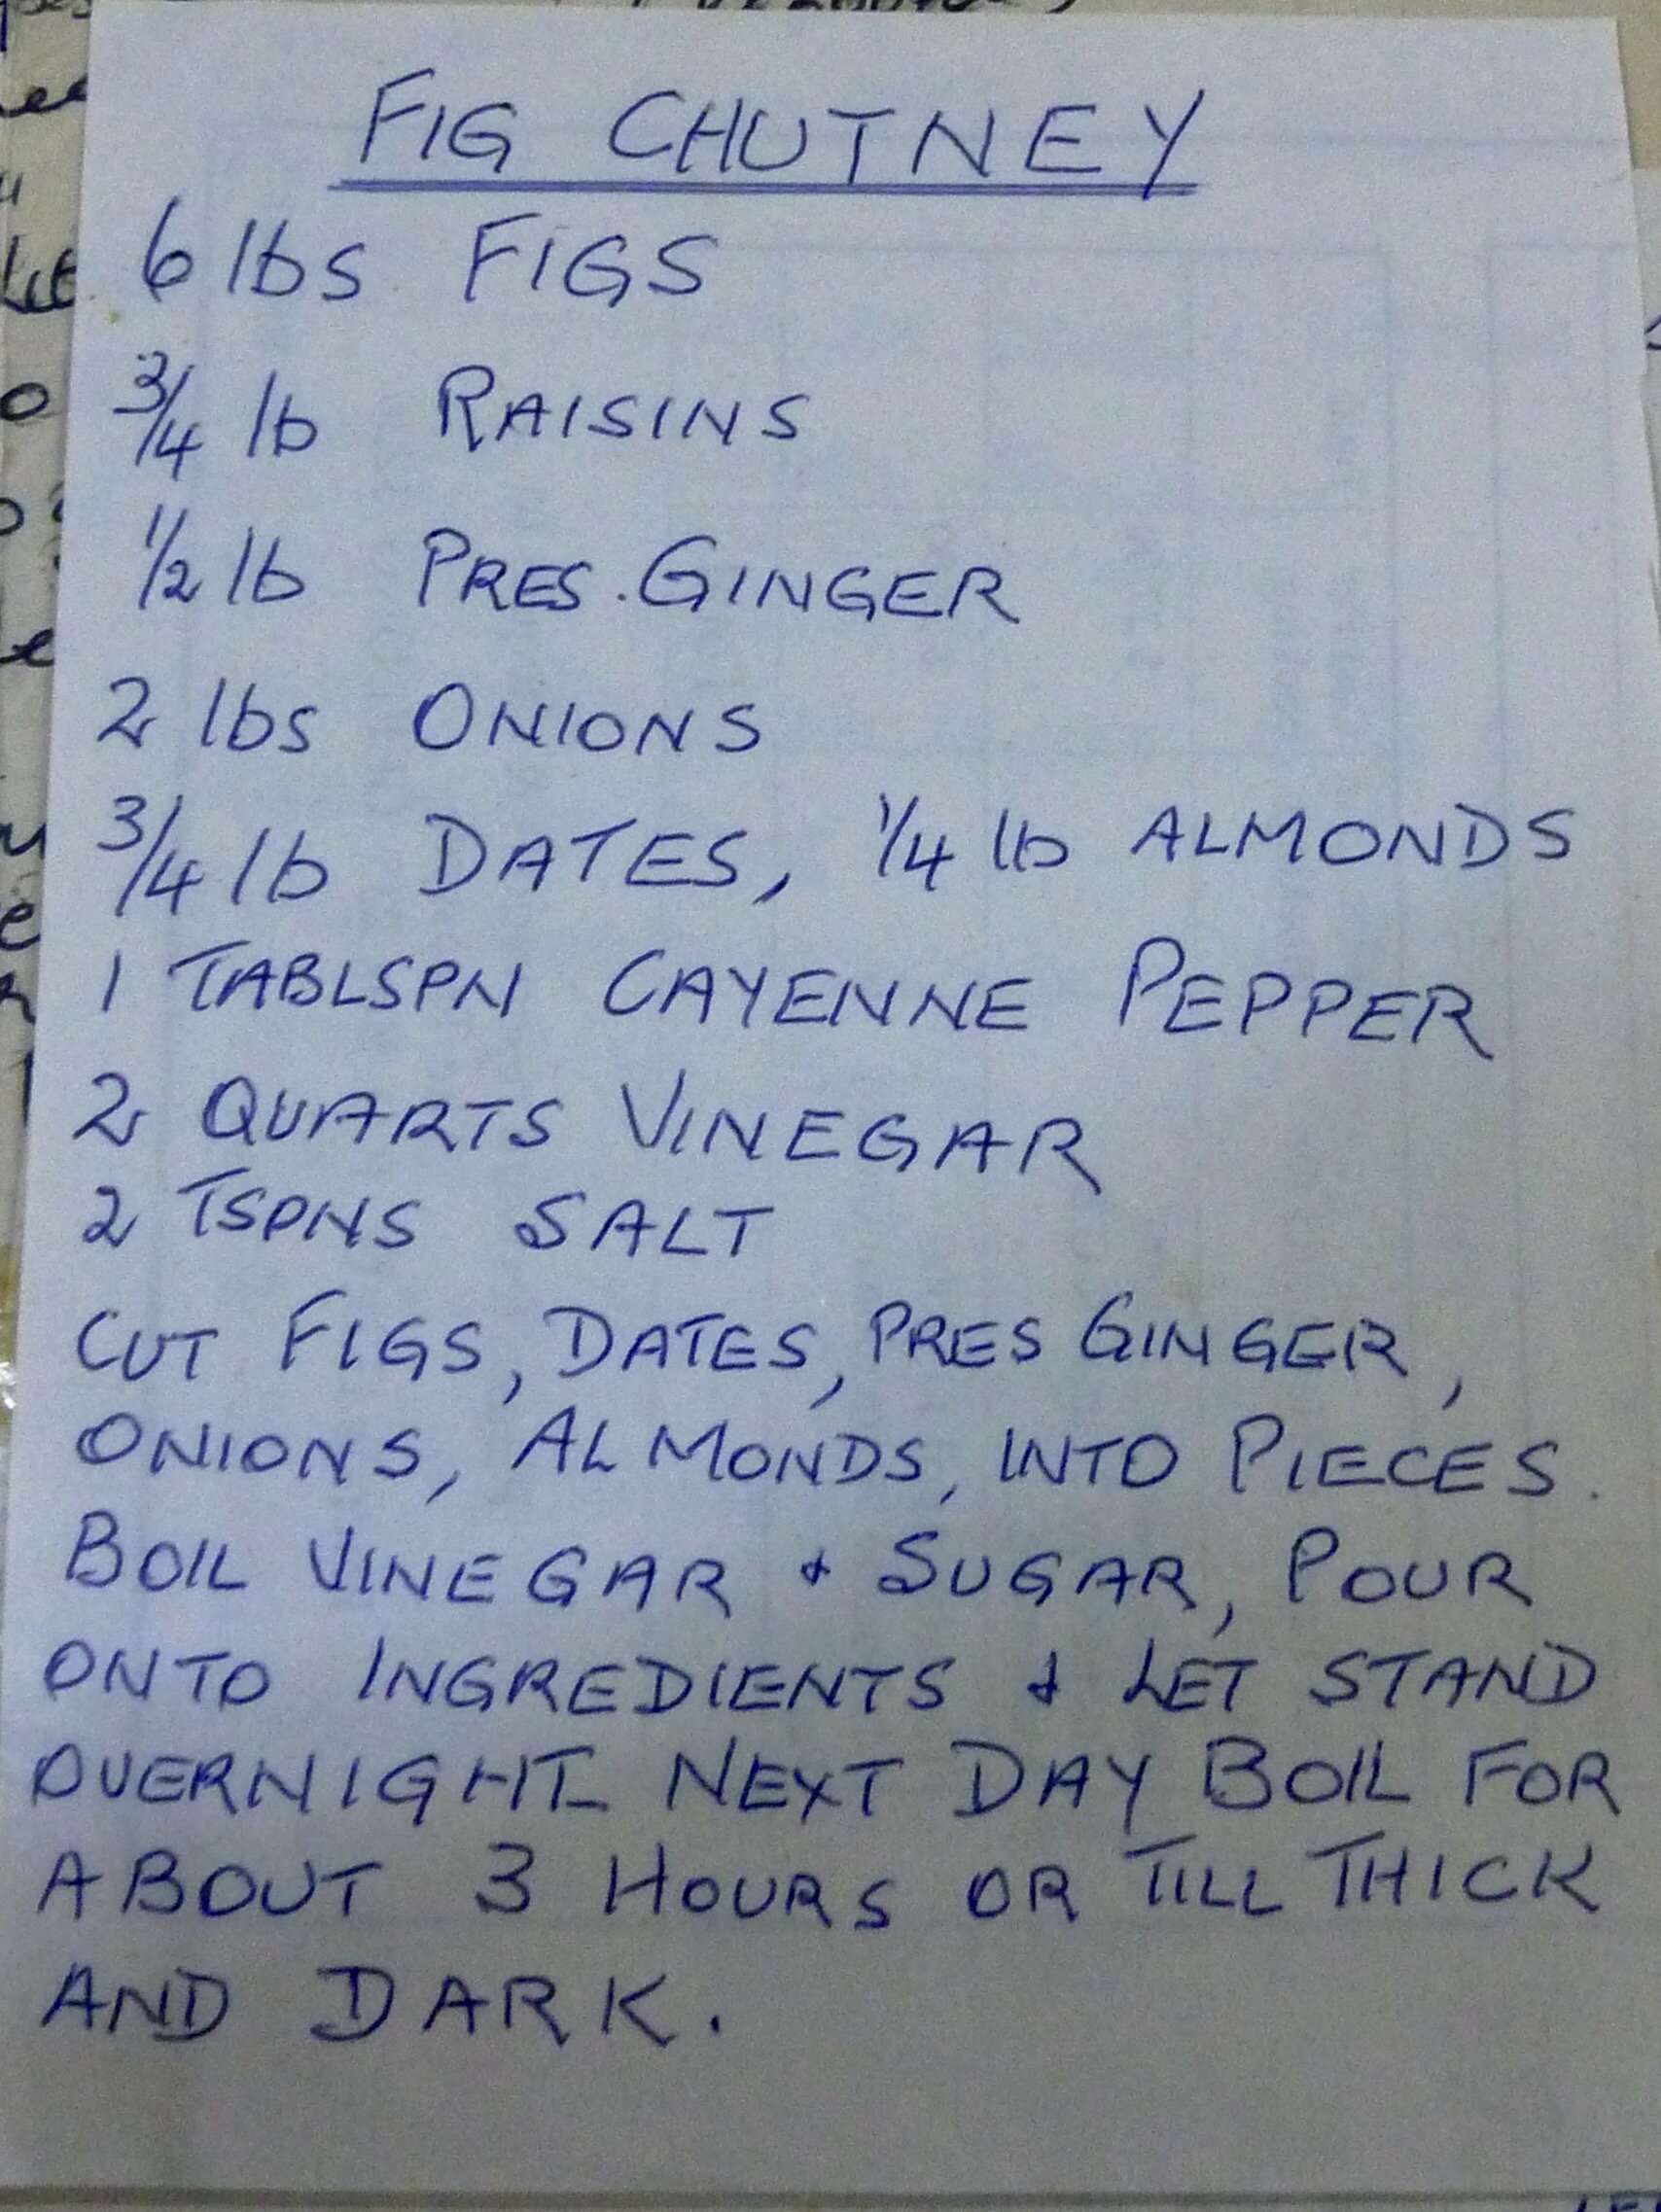 FIG CHUTNEY
6 lbs FIGS
3/4 lb RAISINS
1/2 lb PRES. GINGER
2 lbs ONIONS
3/4 lb DATES, 1/4 lb ALMONDS
1 TABLSPN CAYENNE PEPPER
2 QUARTS VINEGAR
2 TSPNS SALT
CUT FIGS, DATES, PRES GINGER,
ONIONS, ALMONDS, INTO PIECES.
BOIL VINEGAR & SUGAR, POUR
ONTO INGREDIENTS & LET STAND
OVERNIGHT. NEXT DAY BOIL FOR
ABOUT 3 HOURS OR TILL THICK
AND DARK.